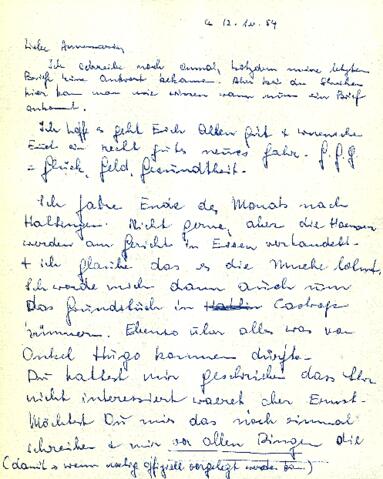 12. 84
Liebe Annemarie,
Ich schreibe noch einmal, trotzdem meine letzten
Brief keine Antwort bekamen. Aber bei die Streiken
hier kann man nie wissen wann nun ein Brief
ankommt.
Ich hoff es geht Euch Allen gut + wuensche
Euch ein recht gutes neues Jahr. G.G.G
= Glück, Geld, Gesundtheit.
Ich fahre Ende des Monats nach
Haltingen. Nicht gerne, aber die
werden am Gericht in Essen verhandelt
+ ich glaube das es die Muehe lohnt.
Ich werde mich dann auch um
Das Grundstück in Castrop
kümmern. Ebenso über alles was von
Onkel Hugo kommen dürfte.
Du hattest mir geschrieben dass Ihr
nicht interessiert waeret aber Ernst.
Möchtest Du mir das noch einmal
schreiben + mir vor allen Dingen die
(damit es wenn noetig offiziell vorgelegt werden kann)